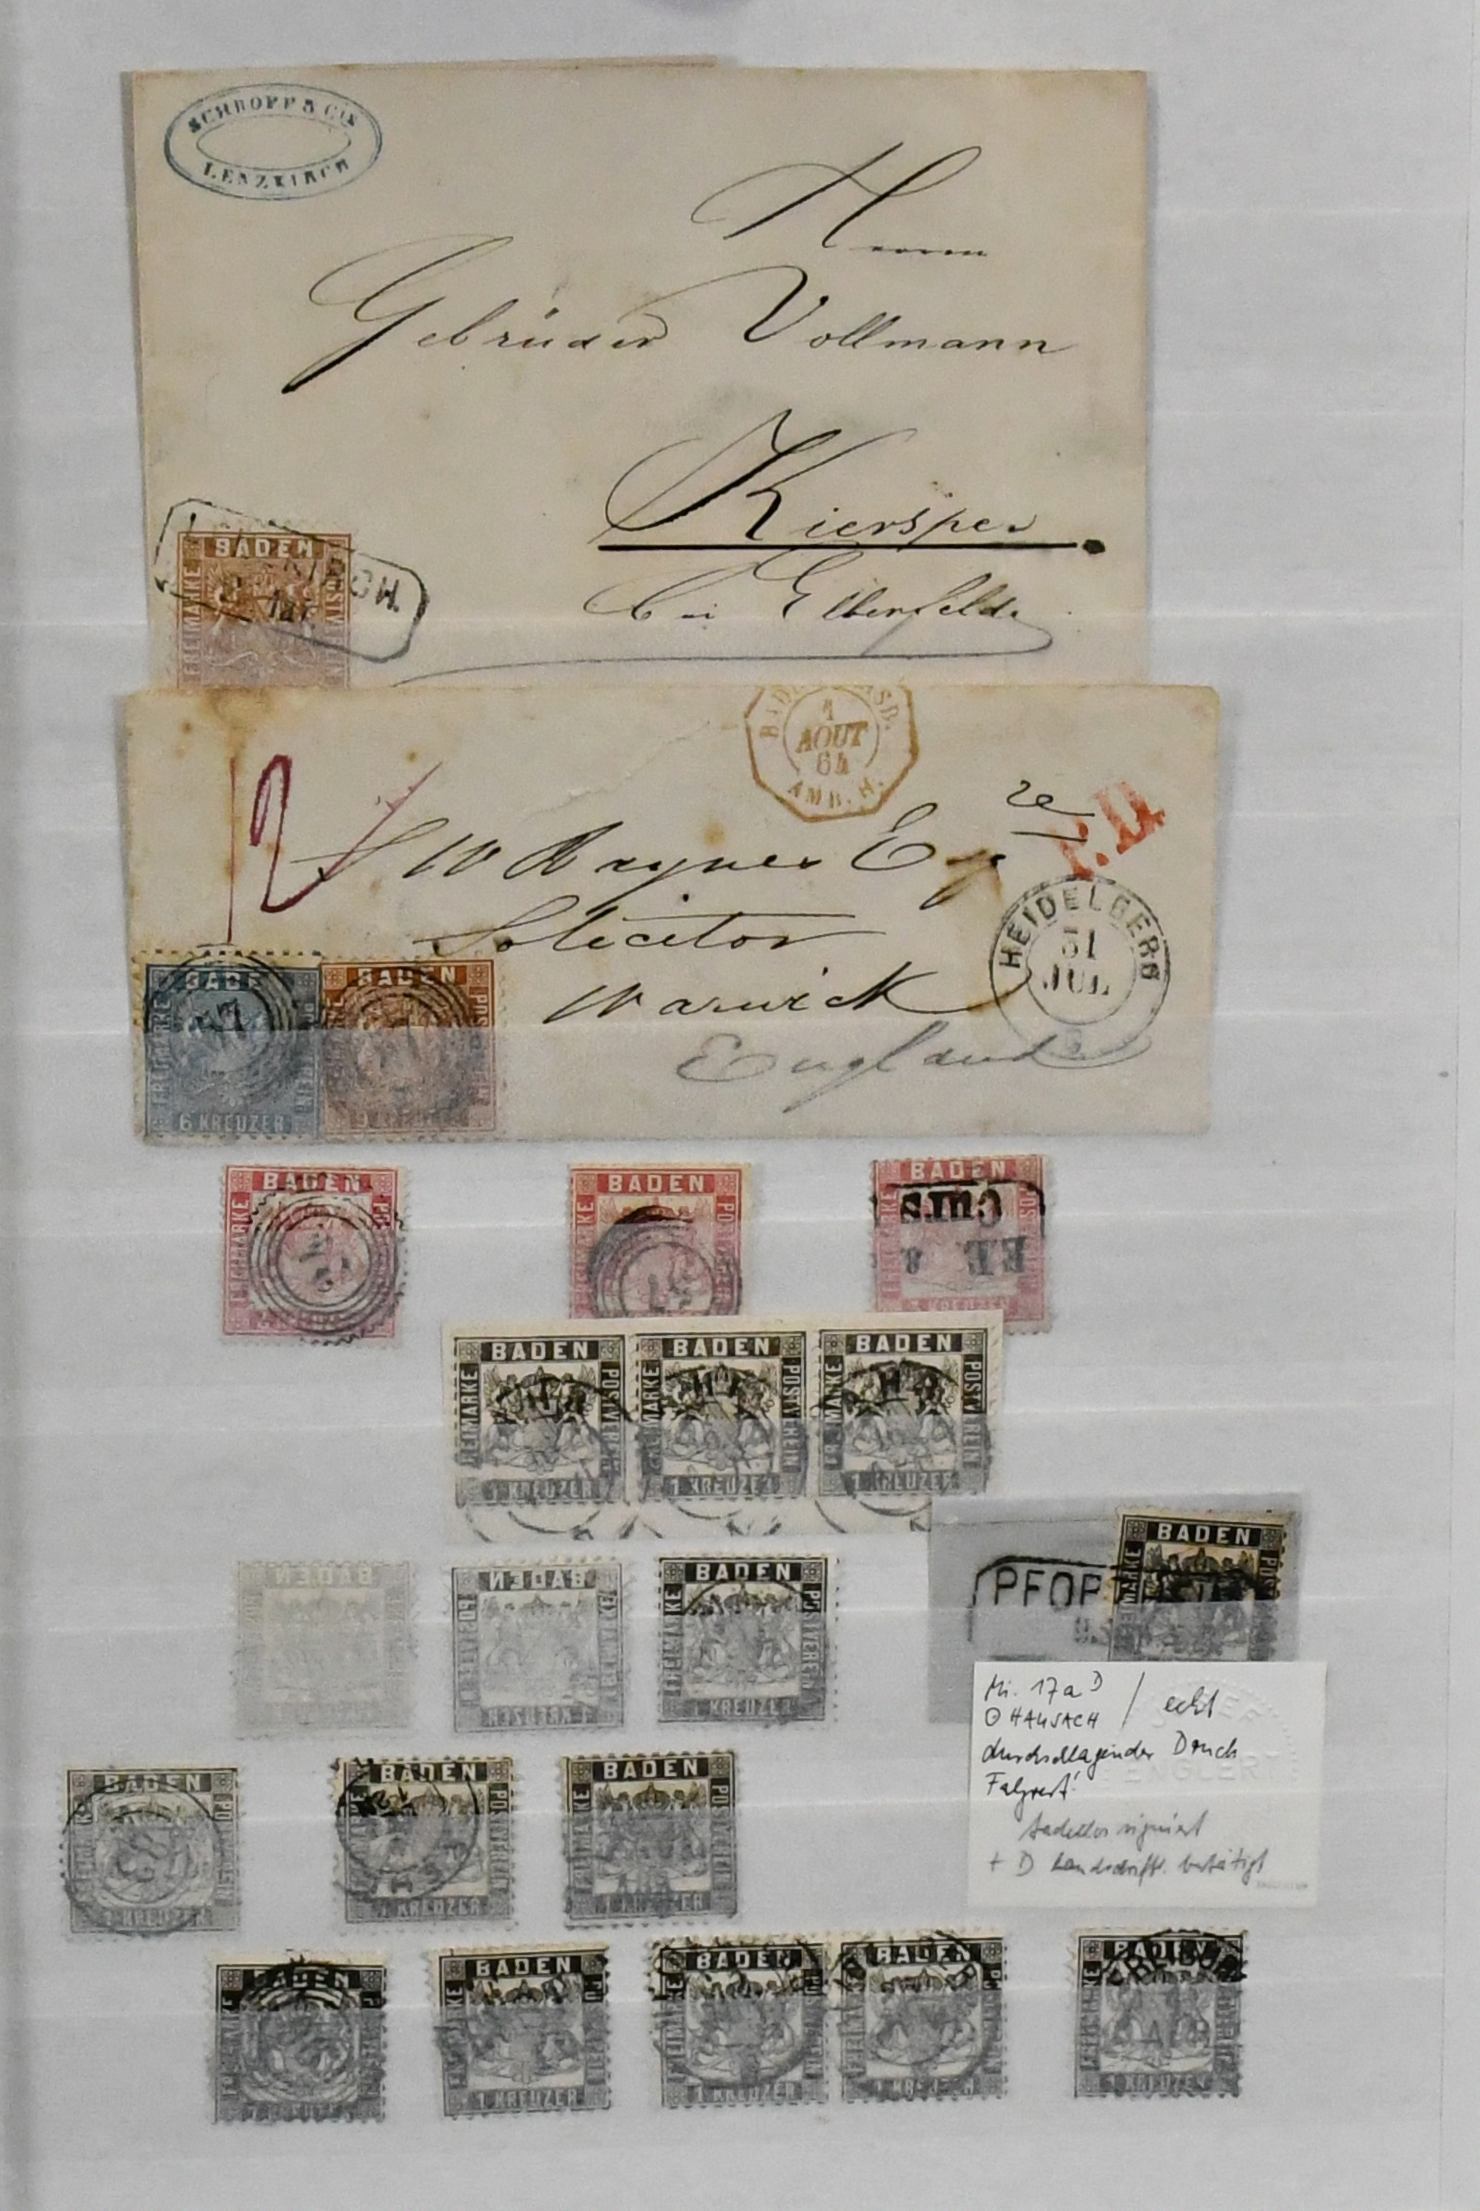 SCHROFF & CIE
LENZKIRCH
Herrn
Gebrüder Vollmann
Kierspe
bei Elberfeld
BADEN
FREIMARKE
POSTV
1
AOUT
64
AMB. H.
P.D.
12
Esqre
Solicitor
Warwick
England
HEIDELBERG
31
JUL
FREIMARKE
6 KREUZER
57
BADEN
POSTVEREIN
9 KREUZER
BADEN
FREIMARKE
BADEN
57
BADEN
Curs
3 KREUZER
BADEN
FREIMARKE
POSTVEREIN
1 KREUZER
BADEN
POSTVEREIN
1 KREUZER
BADEN
FREIMARKE
POSTVEREIN
1 KREUZER
PFOR
BADEN
BADEN
BADEN
BADEN
FREIMARKE
POSTVEREIN
1 KREUZER
Mi. 17a D / echt
HAUSACH
durchschlagender Druck
Falzrest!
tadellos signiert
+ D handschriftl. bestätigt
ENGLERT
BADEN
1 KREUZER
BADEN
POSTVEREIN
1 KREUZER
BADEN
FREIMARKE
1 KREUZER
BADEN
1 KREUZER
BADEN
1 KREUZER
BADEN
FREIMARKE
1 KREUZER
BADEN
1 KREUZER
BADEN
1 KREUZER